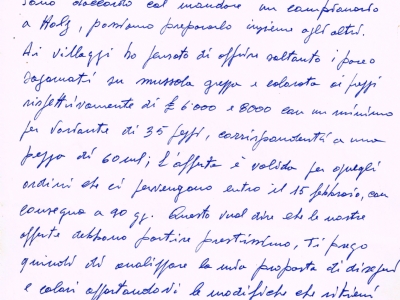 sono d'accordo col mandare un campionario
a Holz, possiamo prepararlo insieme agli altri.
Ai villaggi ho pensato di offrire soltanto i pareo
sagomati su mussola greggia e colorata ai prezzi
rispettivamente di £ 6'000 e 8000 con un minimo
per variante di 35 pezzi, corrispondenti a una
pezza di 60 ml; L'offerta è valida per quegli
ordini che ci pervengono entro il 15 febbraio, con
consegna a 90 gg. Questo vuol dire che le nostre
offerte debbono partire prestissimo, Ti prego
quindi di analizzare la mia proposta di disegni
e colori apportandovi le modifiche che ritieni